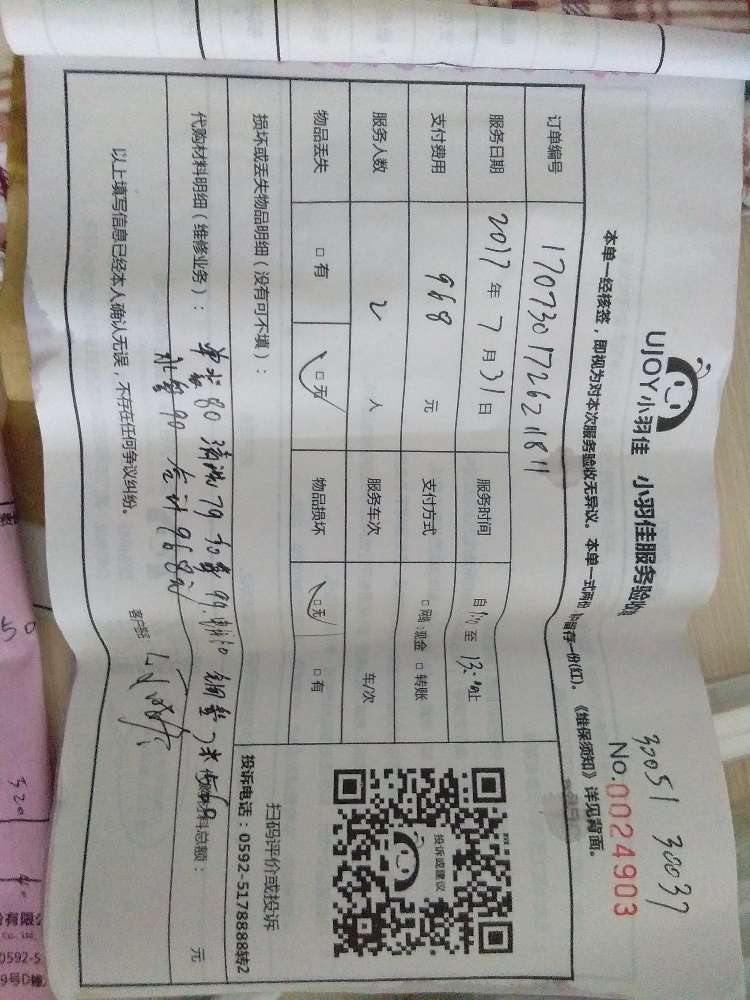 30051 30037
No.0024903
UJOY小羽佳 小羽佳服务验收
本单一经核签，即视为对本次服务验收无异议。本单一式两份 留存一份(红)。《维保须知》详见背面。
订单编号 1707301726211811
服务日期 2017 年 7 月 31 日 服务时间 自 至 13:00止
支付费用 968 元 支付方式 现金 □ 转账
服务人数 2 人 服务车次 车/次
物品丢失 □ 有 □ 无 物品损坏 □ 无 □ 有
投诉或建议
扫码评价或投诉
投诉电话：0592-5178888转2
损坏或丢失物品明细（没有可不填）：
代购材料明细（维修业务）： 80 79 99. 材料总额： 元
水管 90 合计968元
以上填写信息已经本人确认无误，不存在任何争议纠纷。
50
320
有限公
0592-5